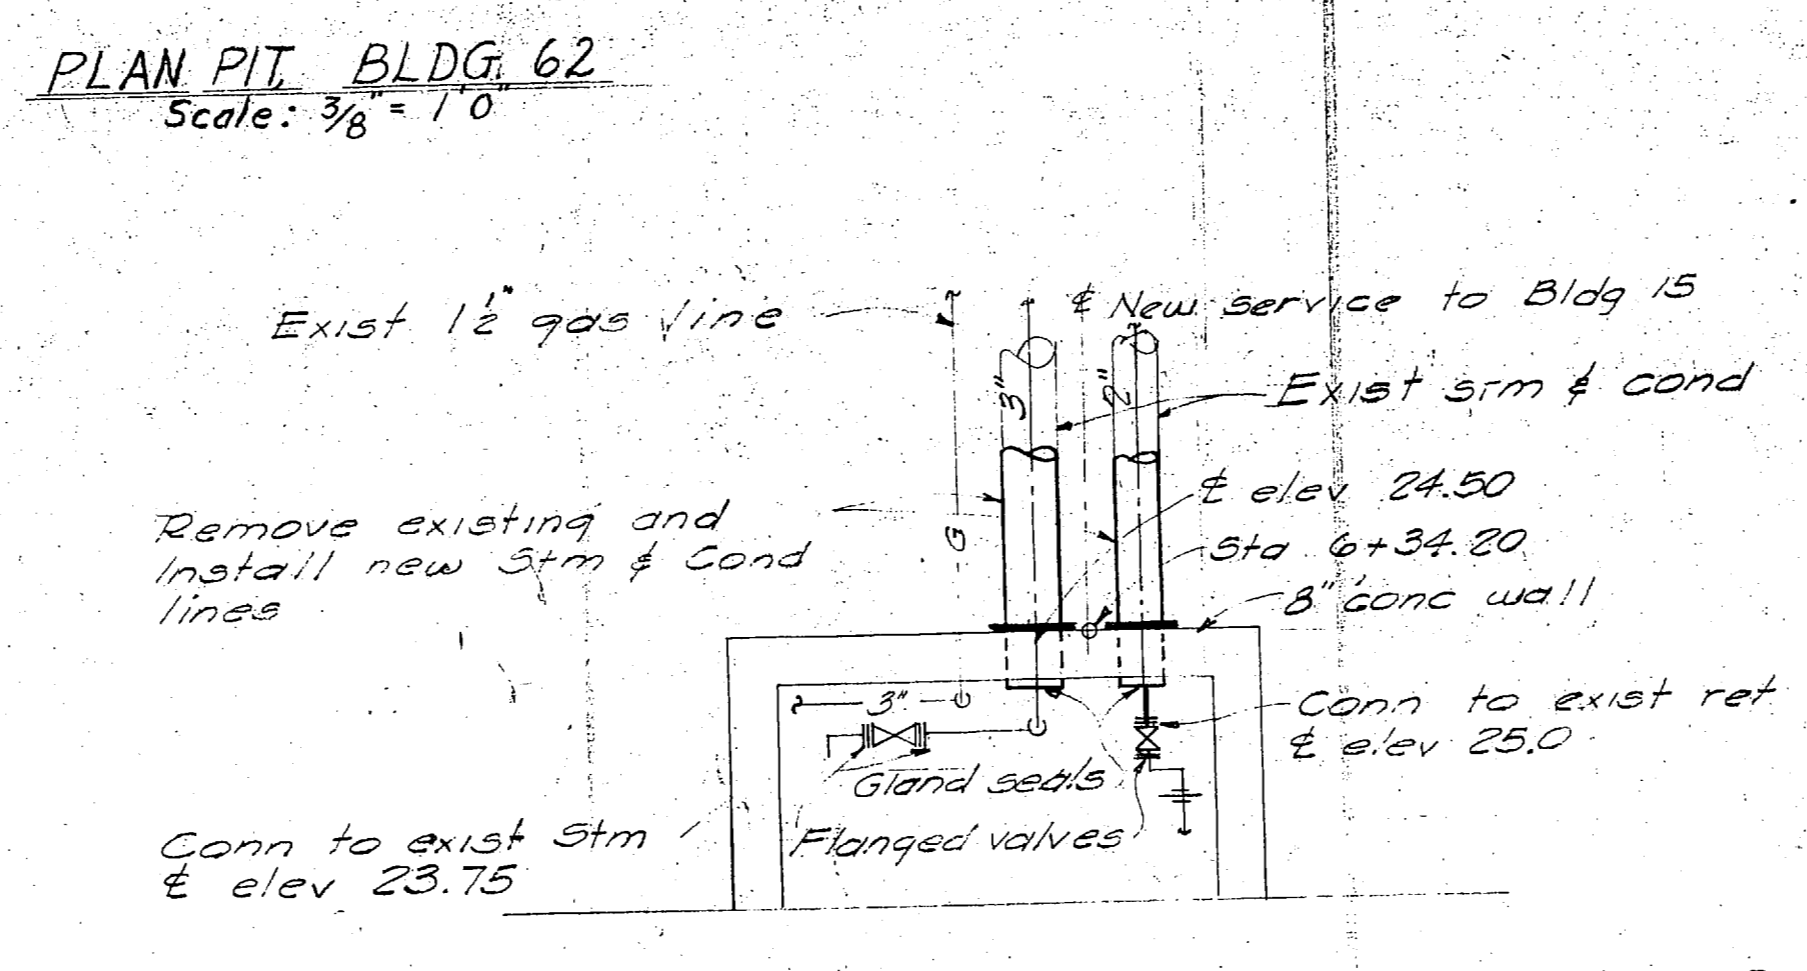 PLAN PIT, BLDG. 62
Scale: 3/8" = 1'0"
Exist 1 1/2" gas line
℄ New service to Bldg 15
3"
2"
Exist stm & cond
℄ elev 24.50
Remove existing and
Install new Stm & Cond
lines
G
Sta 6+34.20
8" conc wall
3"
Conn to exist ret
℄ elev 25.0
Gland seals
Flanged valves
Conn to exist Stm
℄ elev 23.75